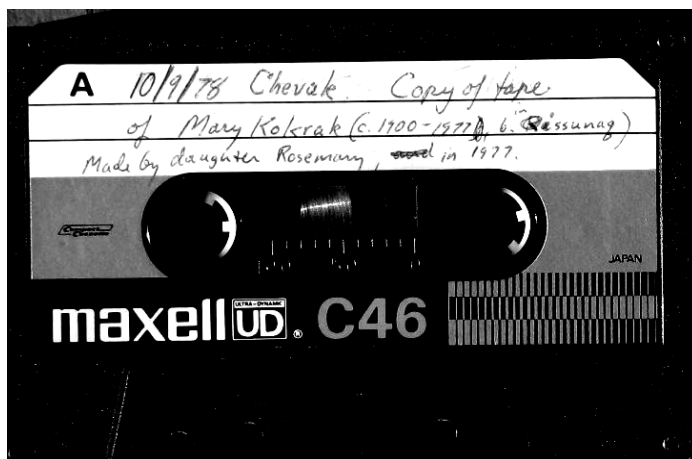 A 10/9/78 Chevak Copy of tape
of Mary Kokrak (c. 1900-1977), b. in Qissunaq)
Made by daughter Rosemary, in 1977.
Compact Cassette
JAPAN
maxell ULTRA-DYNAMIC UD ® C46